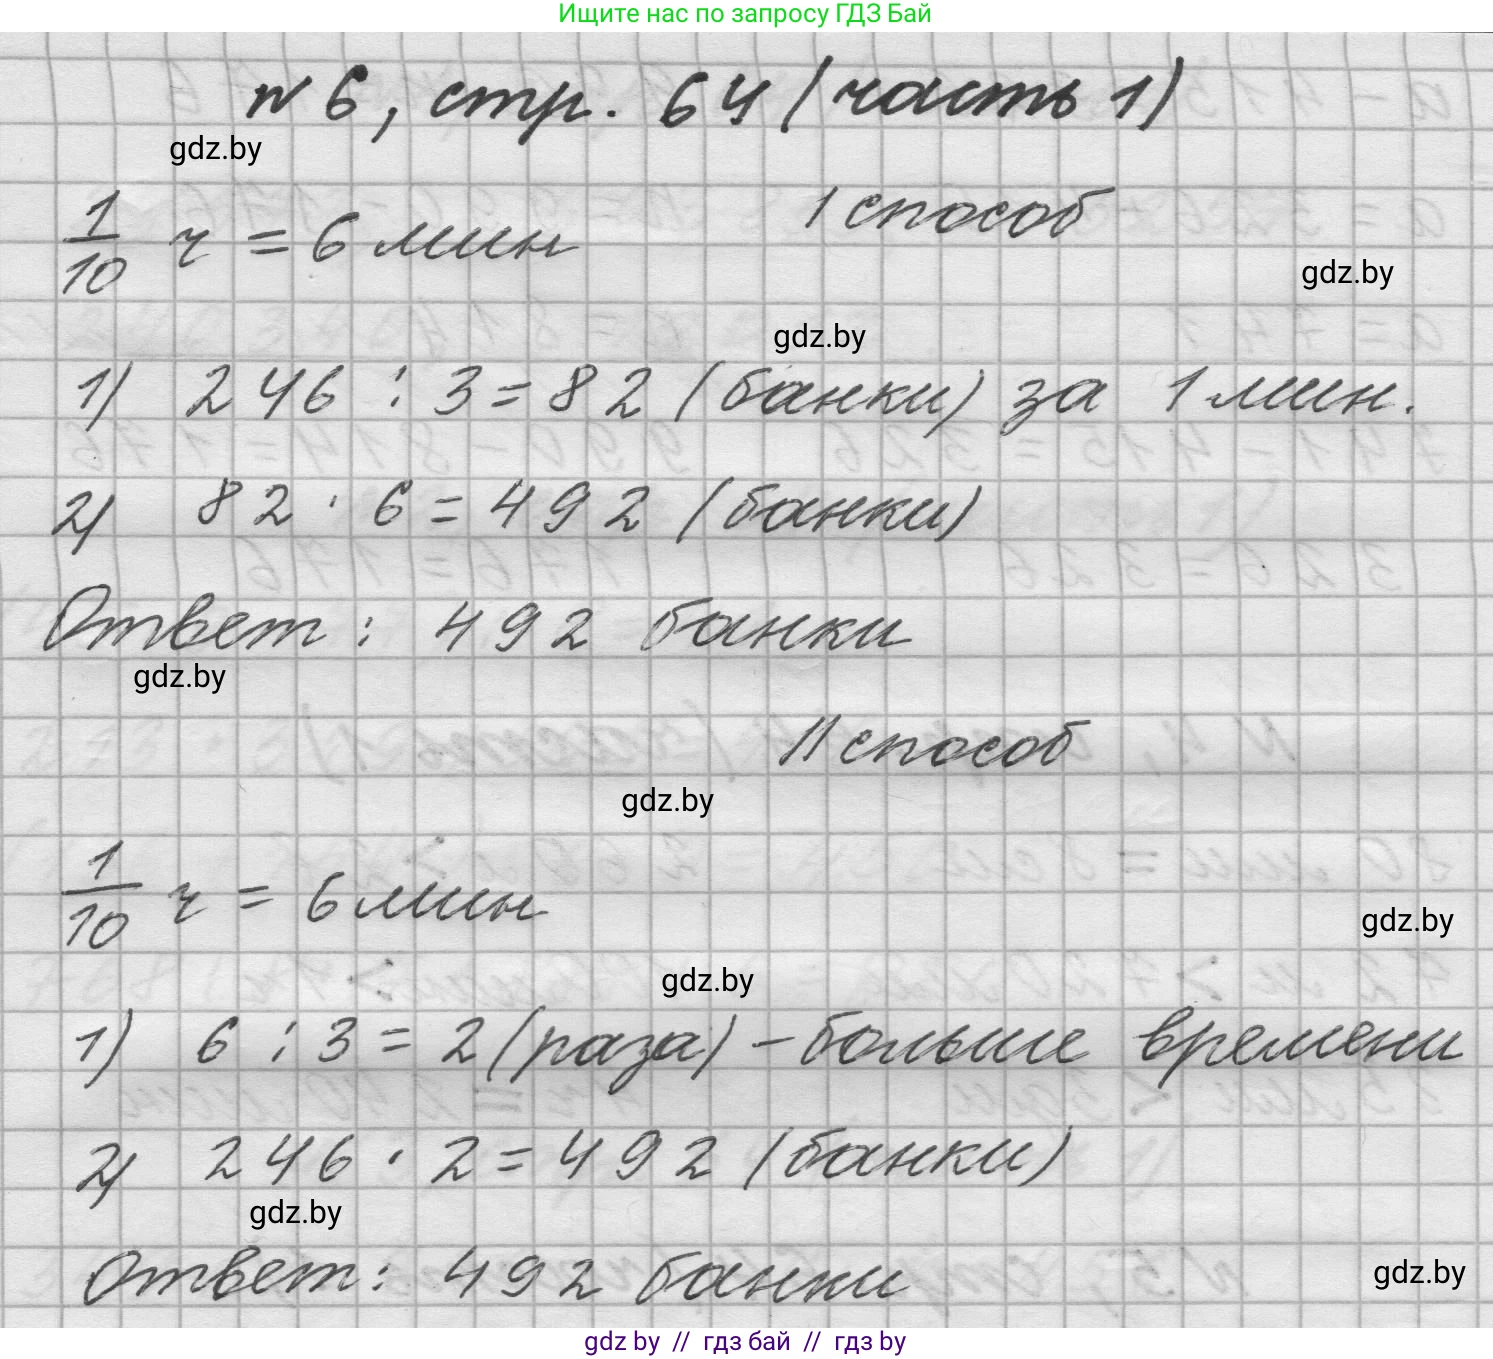 Ищите нас по запросу ГДЗ Бай
№ 6, стр. 64 (часть 1)
gdz.by
I способ
1/10 ч = 6 мин
gdz.by
gdz.by
1) 246 : 3 = 82 (банки) за 1 мин.
2) 82 · 6 = 492 (банки)
Ответ : 492 банки
gdz.by
II способ
gdz.by
1/10 ч = 6 мин
gdz.by
gdz.by
1) 6 : 3 = 2 (раза) – больше времени
2) 246 · 2 = 492 (банки)
gdz.by
Ответ: 492 банки
gdz.by
gdz by // гдз бай // гдз by